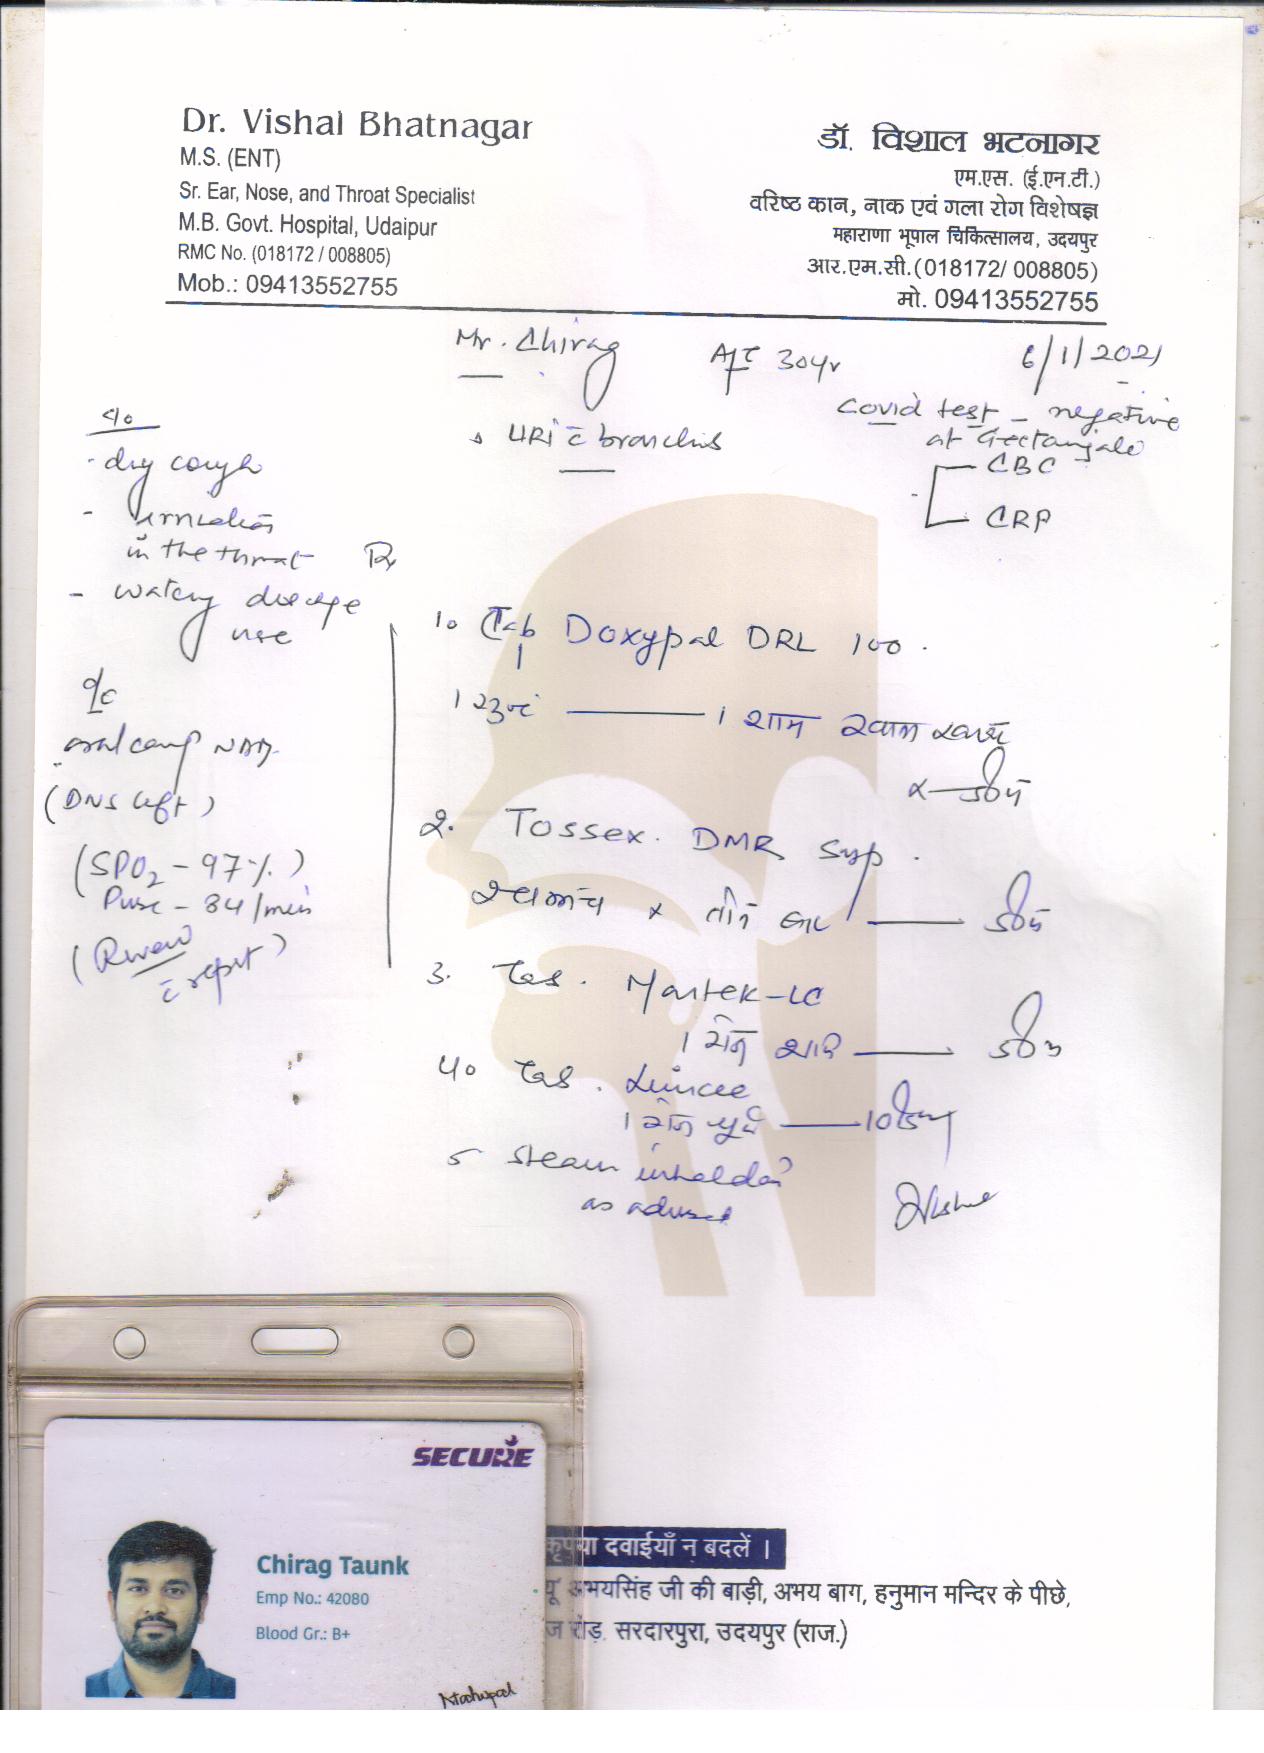 Dr. Vishal Bhatnagar
M.S. (ENT)
Sr. Ear, Nose, and Throat Specialist
M.B. Govt. Hospital, Udaipur
RMC No. (018172 / 008805)
Mob.: 09413552755
डॉ. विशाल भटनागर
एम.एस. (ई.एन.टी.)
वरिष्ठ कान, नाक एवं गला रोग विशेषज्ञ
महाराणा भूपाल चिकित्सालय, उदयपुर
आर.एम.सी.(018172/ 008805)
मो. 09413552755
Mr. Chirag 30yr 6/1/2021
Covid test - negative
at
CBC
CRP
URI c̄
c/o
- dry cough
-
in the throat
- watery
nose
o/e
NAD
(DNS left)
(SPO2 - 97%)
Pulse - 84/min
(Review
c̄ report)
Rx
1. Tab Doxypal DRL 100.
1 सुबह 1 शाम खाना
2. Tossex. DMR Syp.
x तीन बार
3. Tab. Montek-LC
1 रोज
4. Tab. Limcee
1 रोज 10
5 steam inhalation
as advised
SECURE
Chirag Taunk
Emp No.: 42080
Blood Gr.: B+
कृपया दवाईयाँ न बदलें ।
अभयसिंह जी की बाड़ी, अभय बाग, हनुमान मन्दिर के पीछे,
रोड़, सरदारपुरा, उदयपुर (राज.)